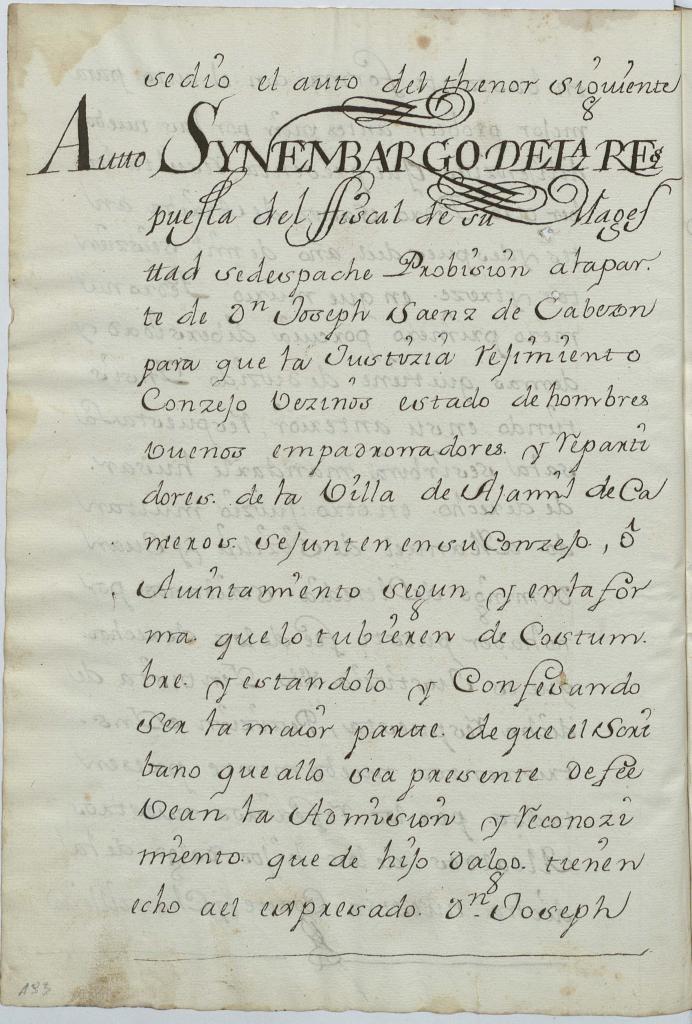 se dio el auto del thenor siguiente
Autto SYNEMBARGO DE LA RES
puesta del ffiscal de su Mages
ttad se despache Probision a la par
te de Dn Joseph Saenz de Cabezon
para que la Justizia rejimiento
Conzejo Vezinos estado de hombres
buenos empadronadores. y reparti
dores. de la Villa de Ajamil de Ca
meros. se junten en su Conzejo, ô
Aiuntamiento segun y en la for
ma. que lo tubieren de Costum.
bre. y estandolo y Confesando
ser la maior partte. de que el Scri
bano que allo sea presente de fee
Vean la Admision y reconozi
miento. que de hijo dalgo. tienen
echo a el expresado. Dn. Joseph
183